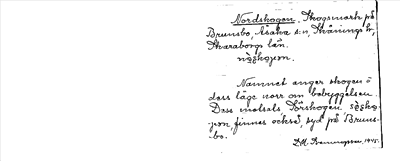 Nordskogen. Skogsmark på
Brunsbo, Åsaka s:n, Skånings hd
Skaraborgs län.
Namnet anger skogen
dess läge norr om bebyggelsen.
Dess motsats Sörskogen
finnes också, syd på Bruns-
bo.
1945.